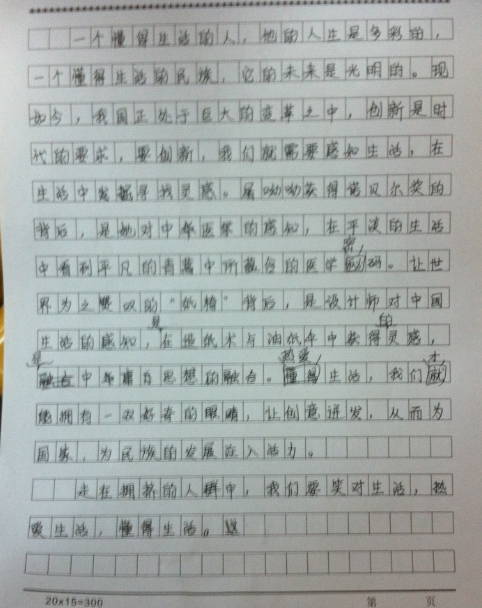 一个懂得生活的人，他的人生是多彩的，
一个懂得生活的民族，它的未来是光明的。现
如今，我国正处于巨大的变革之中，创新是时
代的要求，要创新，我们就需要感知生活，在
生活中发掘寻找灵感。屠呦呦获得诺贝尔奖的
背后，是她对中华医学的感知，在平淡的生活
密
中看到平凡的青蒿中所蕴含的医学码。让世
界为之赞叹的“纸椅”背后，是设计师对中国
是 的
生活的感知，在造纸术与油纸伞中获得灵感，
是 热爱 才
融合中华庸思想的融合。懂得生活，我们就
能拥有一双好奇的眼睛，让创意迸发，从而为
国家，为民族的发展注入活力。
走在拥挤的人群中，我们要笑对生活，热
爱生活，懂得生活。
20×15=300 第 页